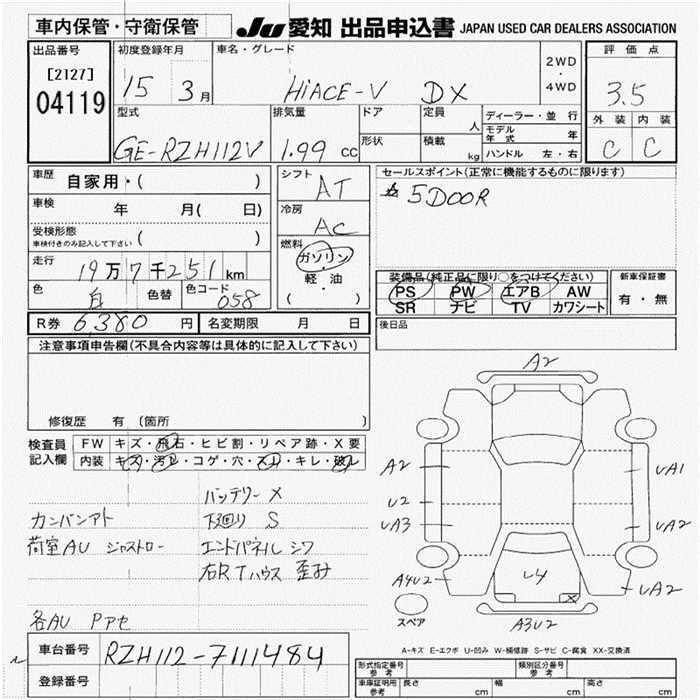 車内保管・守衛保管
JU 愛知 出品申込書 JAPAN USED CAR DEALERS ASSOCIATION
出品番号
[2127]
04119
初度登録年月
15 3月
車名・グレード
HiACE-V DX
2WD
・
4WD
評価点
3.5
外装 内装
C C
型式
GE-RZH112V
排気量
1.99 cc
ドア
形状
定員
人
積載
kg
ディーラー・並行
モデル年式 年
ハンドル 左・右
車歴
自家用・( )
車検
年 月( 日)
受検形態
車検付きのみ記入して下さい ( )
走行
19万7千251km
色
白
色替
色コード
058
シフト
AT
冷房
AC
燃料
ガソリン
・
軽・油
( )
セールスポイント(正常に機能するものに限ります)
5DOOR
装備品(純正品に限り○をつけてください)
PS PW エアB AW
SR ナビ TV カワシート
新車保証書
有・無
R券 6,380 円
名変期限 月 日
後日品
注意事項申告欄(不具合内容等は具体的に記入して下さい)
修復歴 有 〔箇所
検査員記入欄
FW キズ・飛石・ヒビ割・リペア跡・X要
内装 キズ・汚レ・コゲ・穴・スレ・キレ・破レ
バッテリー X
カンバンアト
下廻り S
荷室AU ジャストロー
エンドパネル シワ
右RTハウス 歪み
各AU Pアセ
A2
A2
U2
UA3
A4U2
UA1
UA2
UA2
A3U2
スペア
A-キズ E-エクボ U-凹み W-補修跡 S-サビ C-腐食 XX-交換済
車台番号
RZH112-7111484
登録番号
形式指定番号
参考
類別区分番号
参考
車庫証明用
参考
長さ cm
幅 cm
高さ cm